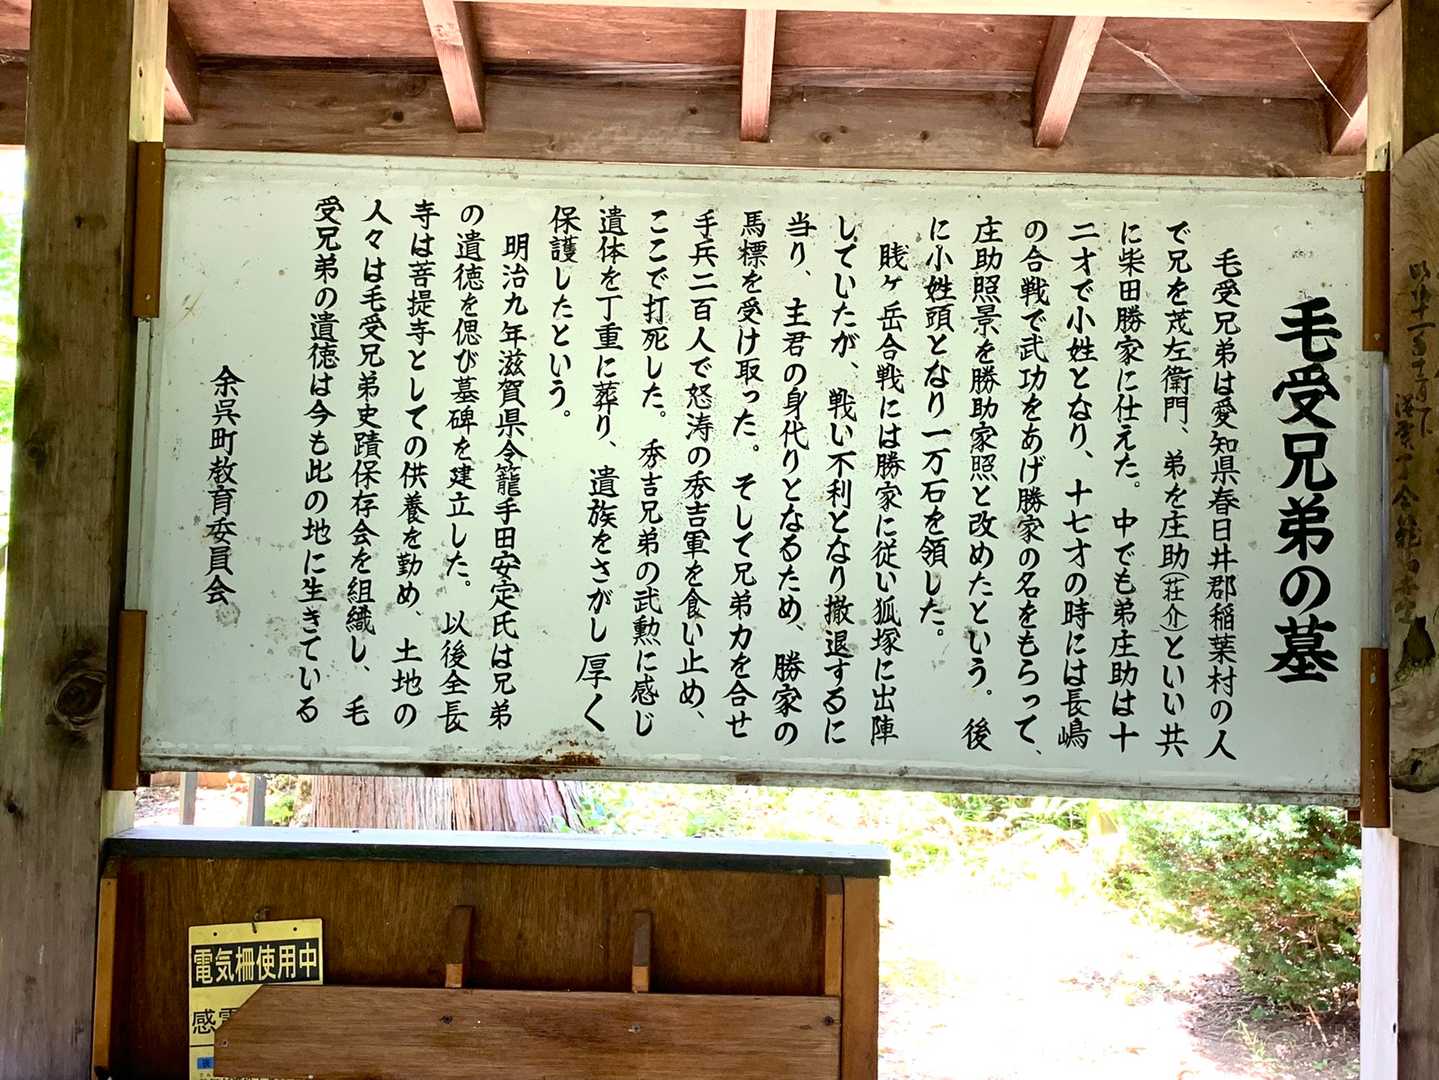 毛受兄弟の墓
毛受兄弟は愛知県春日井郡稲葉村の人
で兄を茂左衛門、弟を庄助(荘介)といい共
に柴田勝家に仕えた。中でも弟庄助は十
二才で小姓となり、十七才の時には長嶋
の合戦で武功をあげ勝家の名をもらって、
庄助照景を勝助家照と改めたという。後
に小姓頭となり一万石を領した。
賎ヶ岳合戦には勝家に従い狐塚に出陣
していたが、戦い不利となり撤退するに
当り、主君の身代りとなるため、勝家の
馬標を受け取った。そして兄弟力を合せ
手兵二百人で怒涛の秀吉軍を食い止め、
ここで打死した。秀吉兄弟の武勲に感じ
遺体を丁重に葬り、遺族をさがし厚く
保護したという。
明治九年滋賀県令籠手田安定氏は兄弟
の遺徳を偲び墓碑を建立した。以後全長
寺は菩提寺としての供養を勤め、土地の
人々は毛受兄弟史蹟保存会を組織し、毛
受兄弟の遺徳は今も此の地に生きている
余呉町教育委員会
電気柵使用中
感電